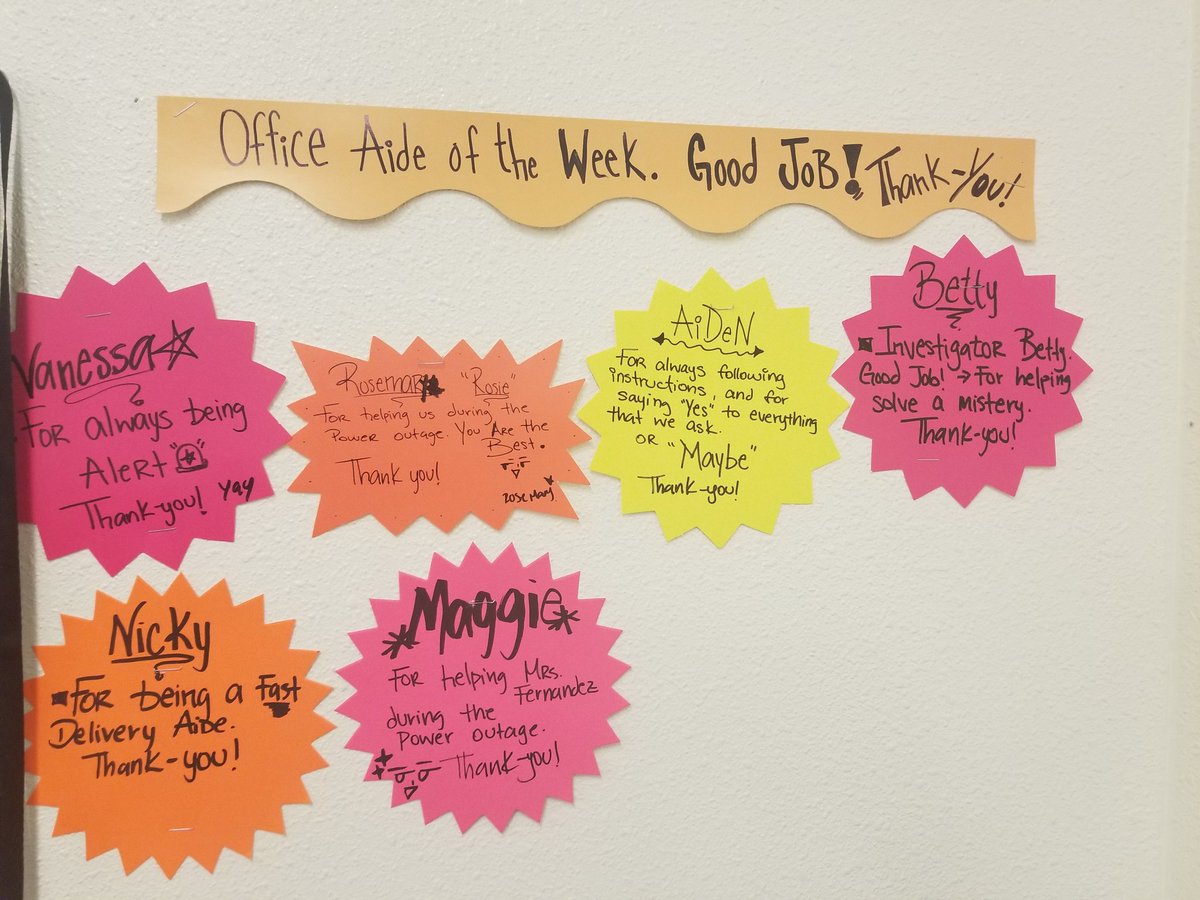 Office Aide of the Week. Good Job! Thank-You!
Vanessa
For always being
Alert
Thank-you! Yay
Rosemary "Rosie"
For helping us during the
Power outage. You Are the
Best.
Thank you!
Rose Mary
AiDeN
For always following
instructions, and for
saying "Yes" to everything
that we ask.
OR "Maybe"
Thank-you!
Betty
Investigator Betty.
Good Job! → For helping
solve a mistery.
Thank-you!
Nicky
For being a Fast
Delivery Aide.
Thank-you!
Maggie
For helping Mrs.
Fernandez
during the
Power outage.
Thank-you!